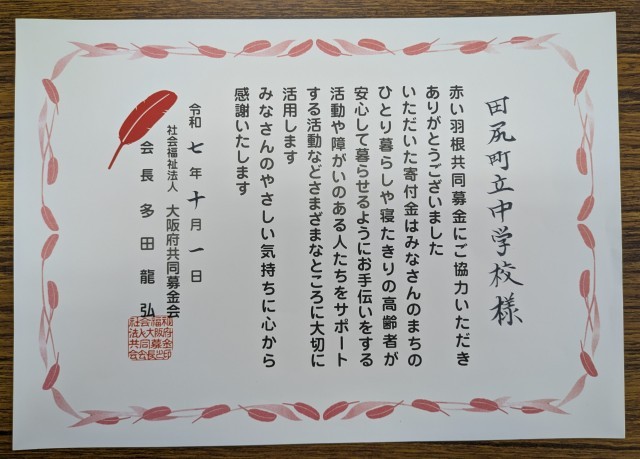 田尻町立中学校様
赤い羽根共同募金にご協力いただき
ありがとうございました
いただいた寄付金はみなさんのまちの
ひとり暮らしや寝たきりの高齢者が
安心して暮らせるようにお手伝いをする
活動や障がいのある人たちをサポート
する活動などさまざまなところに大切に
活用します
みなさんのやさしい気持ちに心から
感謝いたします
令和七年十月一日
社会福祉法人 大阪府共同募金会
会長 多田龍弘